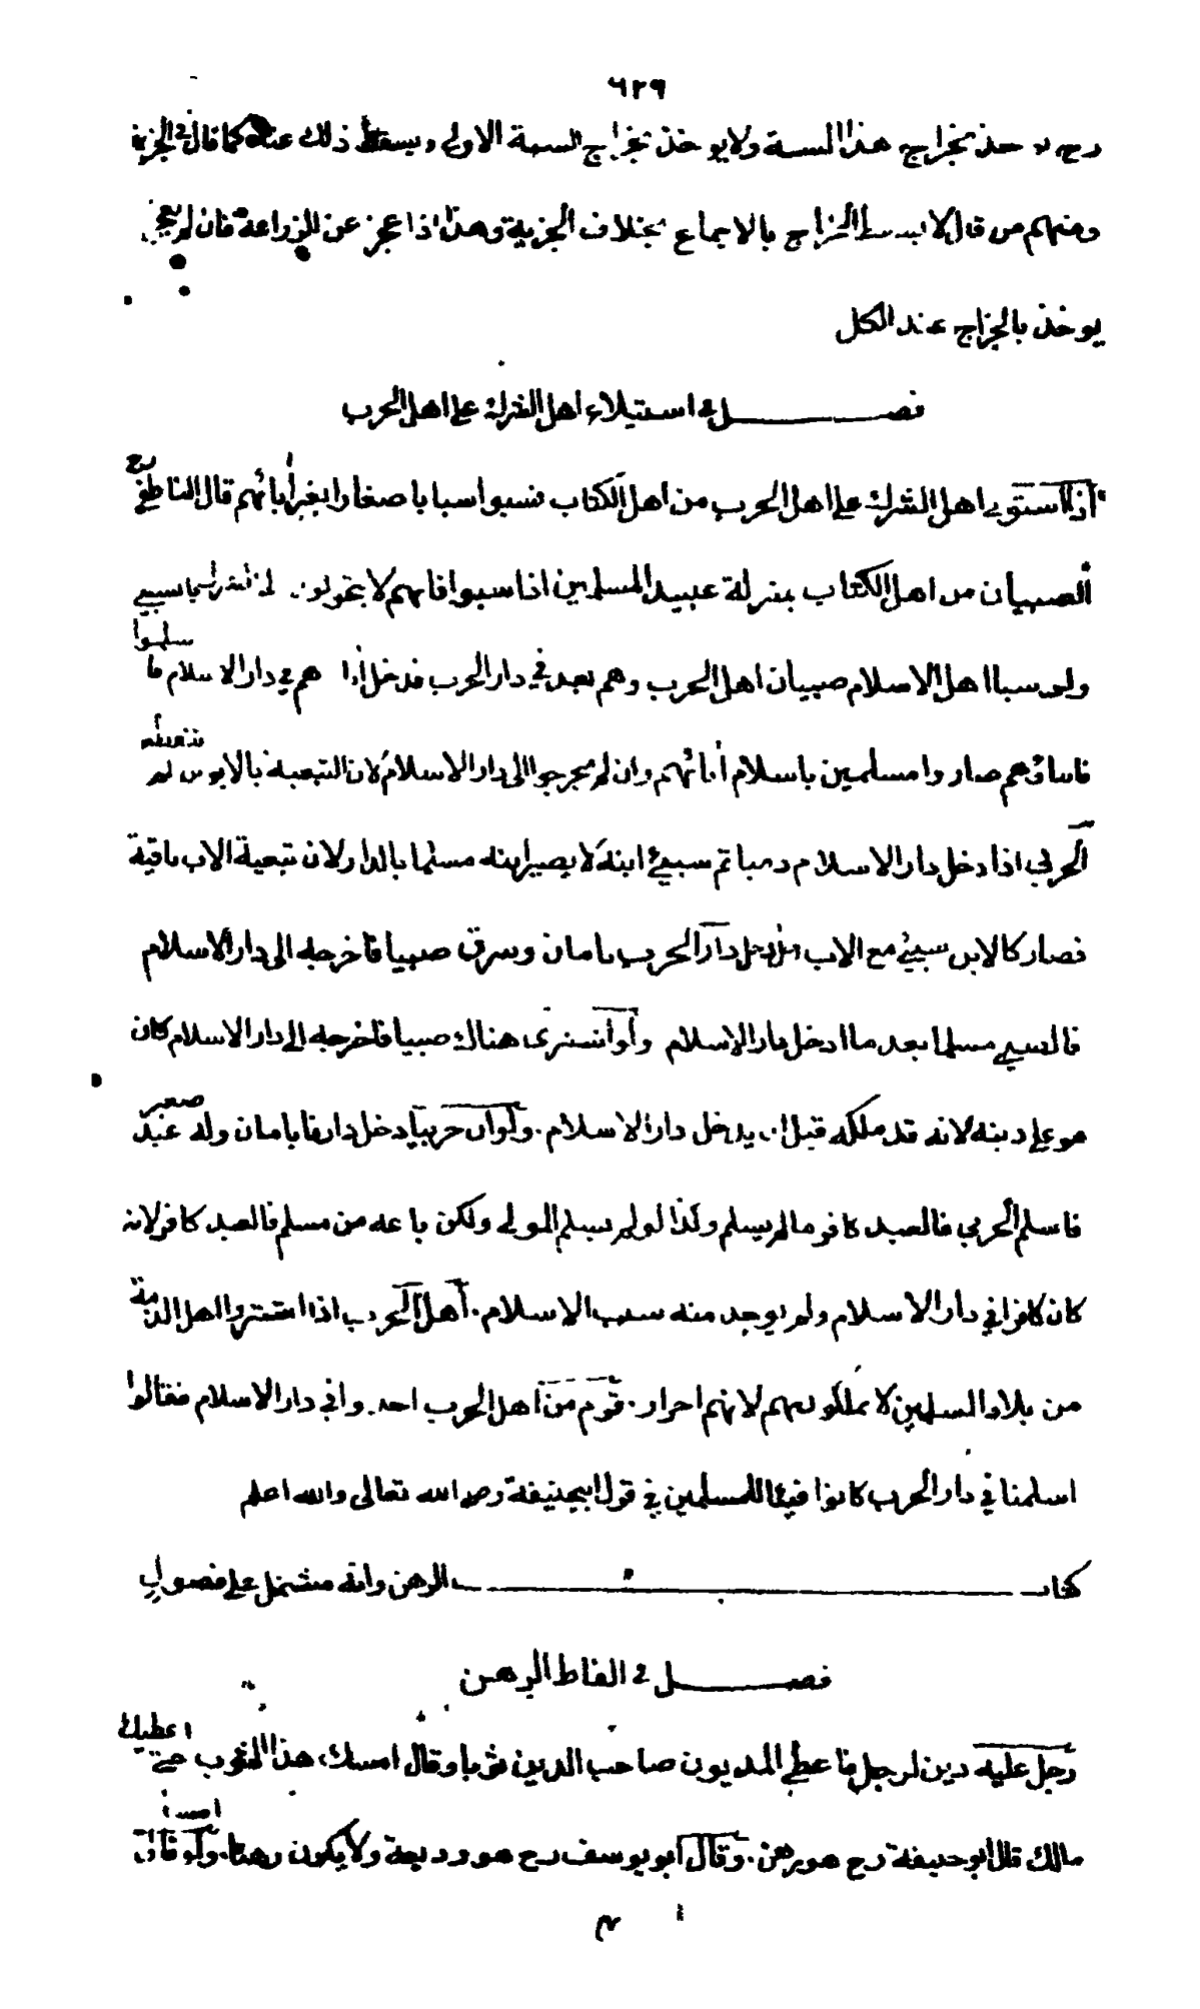 ٦٢٩
رح يؤخذ بخراج هذا السنة ولا يوخذ بخراج السنة الاولى ويسقط ذلك عنه كما قال في الجزية
ومنهم من قال لا يسقط الخراج بالاجماع بخلاف الجزية وهذا اذا عجز عن الزراعة فان لم يعجز
يوخذ بالخراج عند الكل
فصل في استيلاء اهل الشرك على اهل الحرب
اذا استولى اهل الشرك على اهل الحرب من اهل الكتاب فسبوا سبايا صغارا بغير آبائهم قال الناطفي رح
الصبيان من اهل الكتاب بمنزلة عبيد المسلمين اذا سبوا فانهم لا يتحولون
ولو سبا اهل الاسلام صبيان اهل الحرب وهم بعد في دار الحرب فدخل آباؤهم في دار الاسلام فاسلموا
فابناؤهم صاروا مسلمين باسلام آبائهم وان لم يخرجوا الى دار الاسلام لان التبعية بالابوين لم تنقطع
الحربي اذا دخل دار الاسلام ذميا ثم سبي ابنه لا يصير ابنه مسلما بالدار لان تبعية الاب باقية
فصار كالابن سبي مع الاب رجل دخل دار الحرب بامان وسرق صبيا فاخرجه الى دار الاسلام
فالصبي مسلما بعد ما ادخل دار الاسلام ولو اشترى هناك صبيا فاخرجه الى دار الاسلام كان
هو على دينه لانه قد ملكه قبل ان يدخل دار الاسلام ولو ان حربيا دخل دارنا بامان وله عبد صغير
فاسلم الحربي فالعبد كافر ما لم يسلم وكذا لو لم يسلم المولى ولكن باعه من مسلم فالعبد كافر لانه
كان كافرا في دار الاسلام ولم يوجد منه سبب الاسلام اهل الحرب اذا استرقوا اهل الذمة
من بلاد المسلمين لا يملكونهم لانهم احرار قوم من اهل الحرب اخذوا في دار الاسلام فقالوا
اسلمنا في دار الحرب كانوا فيئا للمسلمين في قول ابيحنيفة رحمه الله تعالى والله اعلم
كتاب الرهن وانه مشتمل على فصول
فصل في الفاظ الرهن
رجل عليه دين لرجل فاعطى المديون صاحب الدين ثوبا وقال امسك هذا الثوب حتى اعطيك
مالك قال ابو حنيفة رح هو رهن وقال ابو يوسف رح هو وديعة ولا يكون رهنا ولو قال امسك